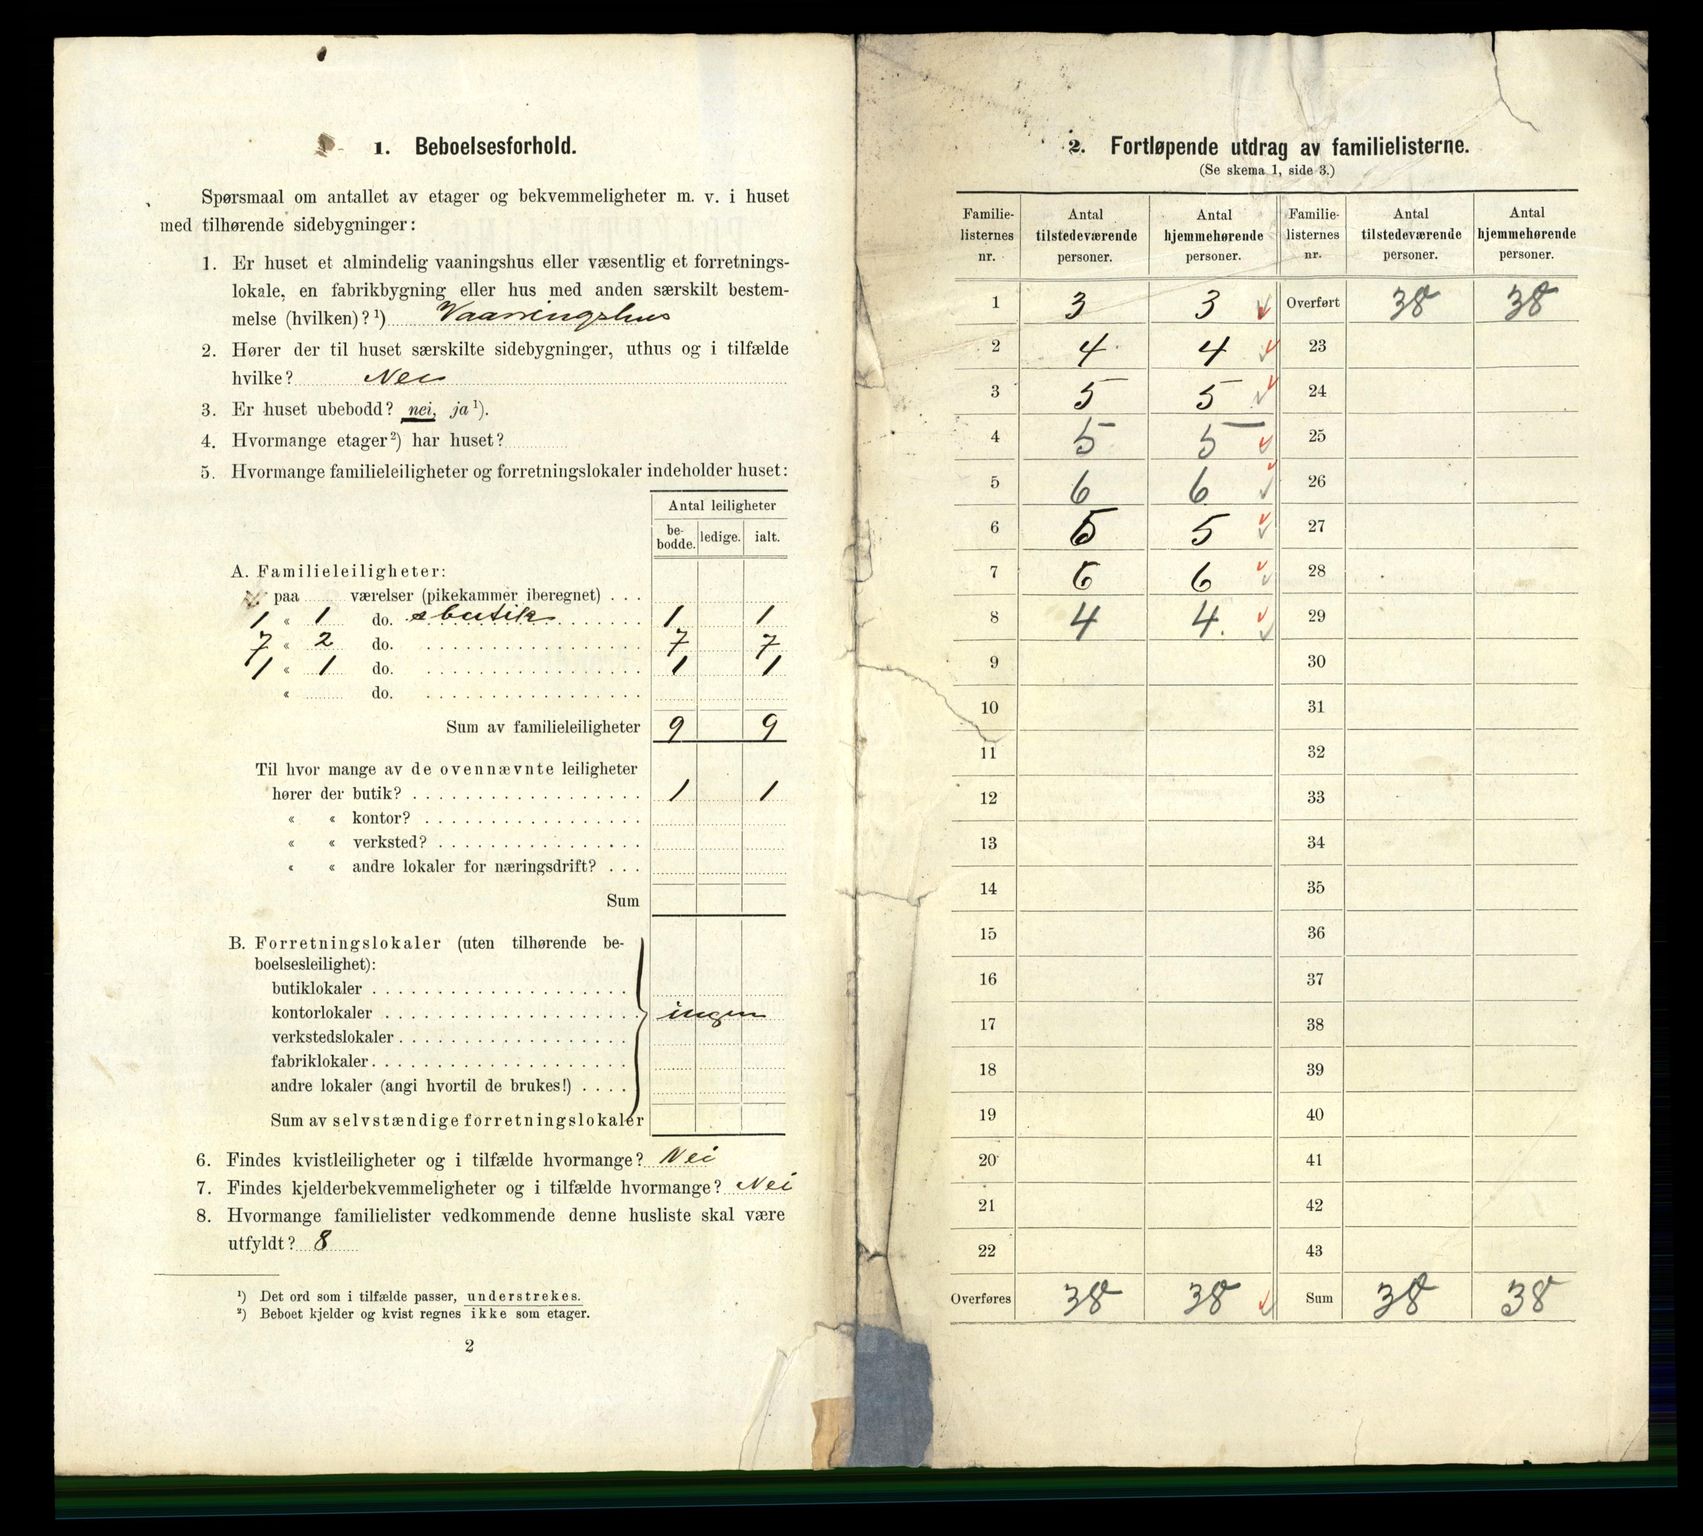 1. Beboelsesforhold.
Spørsmaal om antallet av etager og bekvemmeligheter m. v. i huset
med tilhørende sidebygninger:
1. Er huset et almindelig vaaningshus eller væsentlig et forretnings-
lokale, en fabrikbygning eller hus med anden særskilt bestem-
melse (hvilken)?¹) Vaaningshus
2. Hører der til huset særskilte sidebygninger, uthus og i tilfælde
hvilke? Nei
3. Er huset ubebodd? nei, ja¹).
4. Hvormange etager²) har huset?
5. Hvormange familieleiligheter og forretningslokaler indeholder huset:
Antal leiligheter
be-bodde. ledige. ialt.
A. Familieleiligheter:
paa værelser (pikekammer iberegnet) . . .
1 « 1 do. butik 1 1
7 « 2 do. 7 7
1 « 1 do. 1 1
« do.
Sum av familieleiligheter 9 9
Til hvor mange av de ovennævnte leiligheter
hører der butik? 1 1
« « kontor?
« « verksted?
« « andre lokaler for næringsdrift? . . .
Sum
B. Forretningslokaler (uten tilhørende be-
boelsesleilighet):
butiklokaler
kontorlokaler ingen
verkstedslokaler
fabriklokaler
andre lokaler (angi hvortil de brukes!) . . . .
Sum av selvstændige forretningslokaler
6. Findes kvistleiligheter og i tilfælde hvormange? Nei
7. Findes kjelderbekvemmeligheter og i tilfælde hvormange? Nei
8. Hvormange familielister vedkommende denne husliste skal være
utfyldt? 8
¹) Det ord som i tilfælde passer, understrekes.
²) Beboet kjelder og kvist regnes ikke som etager.
2
2. Fortløpende utdrag av familielisterne.
(Se skema 1, side 3.)
Familie-listernes nr. Antal tilstedeværende personer. Antal hjemmehørende personer. Familie-listernes nr. Antal tilstedeværende personer. Antal hjemmehørende personer.
1 3 3 Overført 38 38
2 4 4 23
3 5 5 24
4 5 5 25
5 6 6 26
6 5 5 27
7 6 6 28
8 4 4. 29
9 30
10 31
11 32
12 33
13 34
14 35
15 36
16 37
17 38
18 39
19 40
20 41
21 42
22 43
Overføres 38 38 Sum 38 38